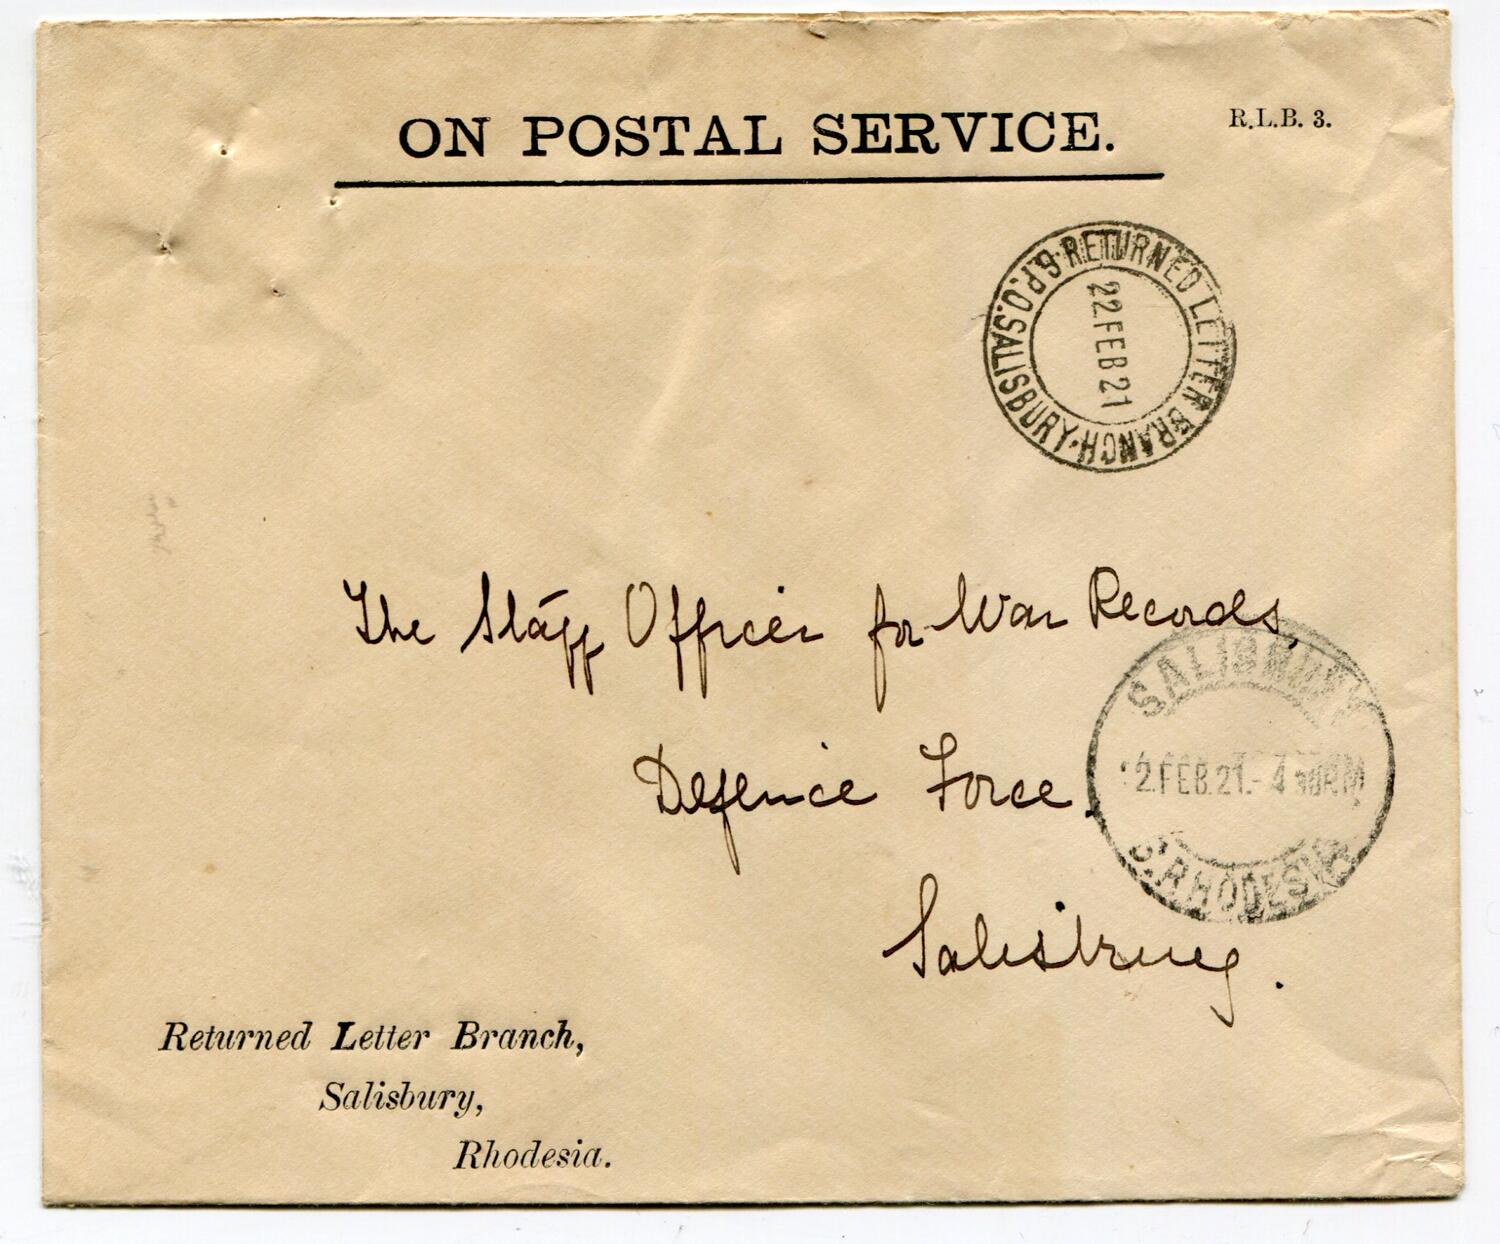 ON POSTAL SERVICE.
R.L.B. 3.
G.P.O. SALISBURY · RETURNED LETTER BRANCH ·
22 FEB 21
The Staff Officer for War Records,
Defence Force,
Salisbury.
SALISBURY
2. FEB. 21. - 4 30 P.M
S. RHODESIA
Returned Letter Branch,
Salisbury,
Rhodesia.